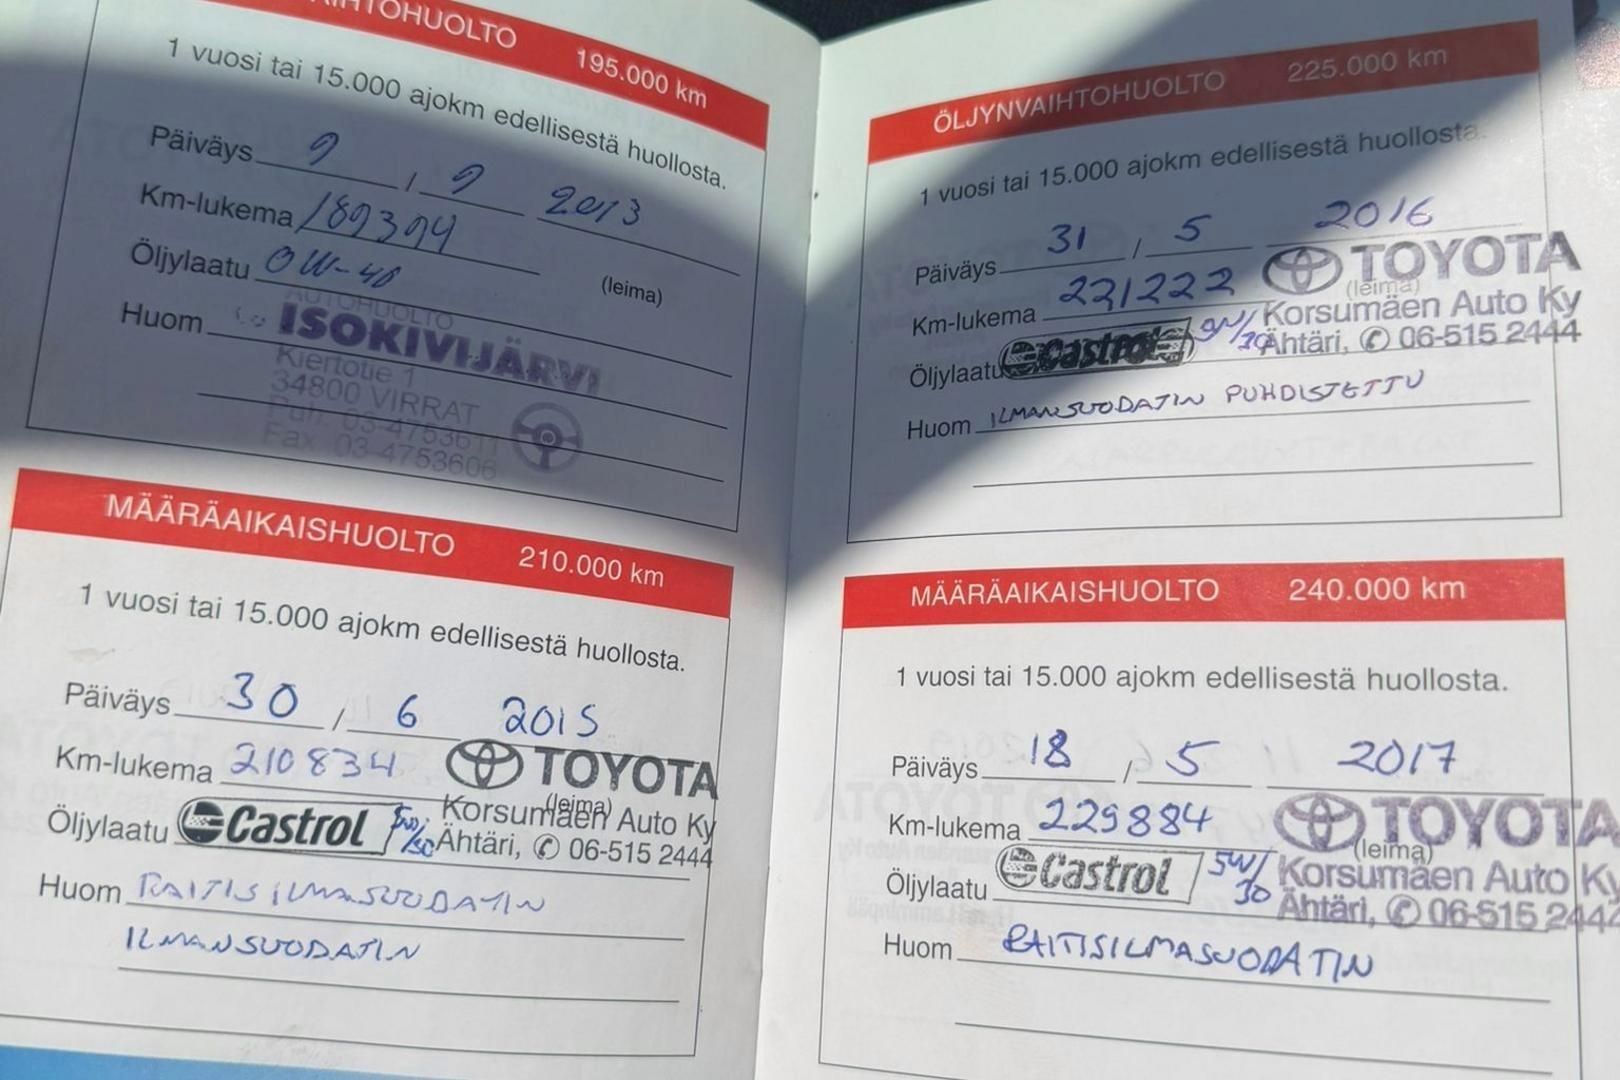 VAIHTOHUOLTO 195.000 km
1 vuosi tai 15.000 ajokm edellisestä huollosta.
Päiväys 9 / 9 2013
Km-lukema 189394
Öljylaatu 0W-40
(leima)
Huom
AUTOHUOLTO
ISOKIVIJÄRVI
Kiertotie 1
34800 VIRRAT
Puh. 03-4753611
Fax 03-4753606
MÄÄRÄAIKAISHUOLTO 210.000 km
1 vuosi tai 15.000 ajokm edellisestä huollosta.
Päiväys 30 / 6 2015
Km-lukema 210834 TOYOTA
(leima)
Öljylaatu Castrol 5W/30 Korsumäen Auto Ky
Ähtäri, ✆ 06-515 2444
Huom RAITISILMASUODATIN
ILMANSUODATIN
ÖLJYNVAIHTOHUOLTO 225.000 km
1 vuosi tai 15.000 ajokm edellisestä huollosta.
Päiväys 31 / 5 2016
Km-lukema 221222 TOYOTA
(leima)
Öljylaatu Castrol Korsumäen Auto Ky
Ähtäri, ✆ 06-515 2444
Huom ILMANSUODATIN PUHDISTETTU
MÄÄRÄAIKAISHUOLTO 240.000 km
1 vuosi tai 15.000 ajokm edellisestä huollosta.
Päiväys 18 / 5 2017
Km-lukema 229884 TOYOTA
(leima)
Öljylaatu Castrol 5W/30 Korsumäen Auto Ky
Ähtäri, ✆ 06-515 2444
Huom RAITISILMASUODATIN